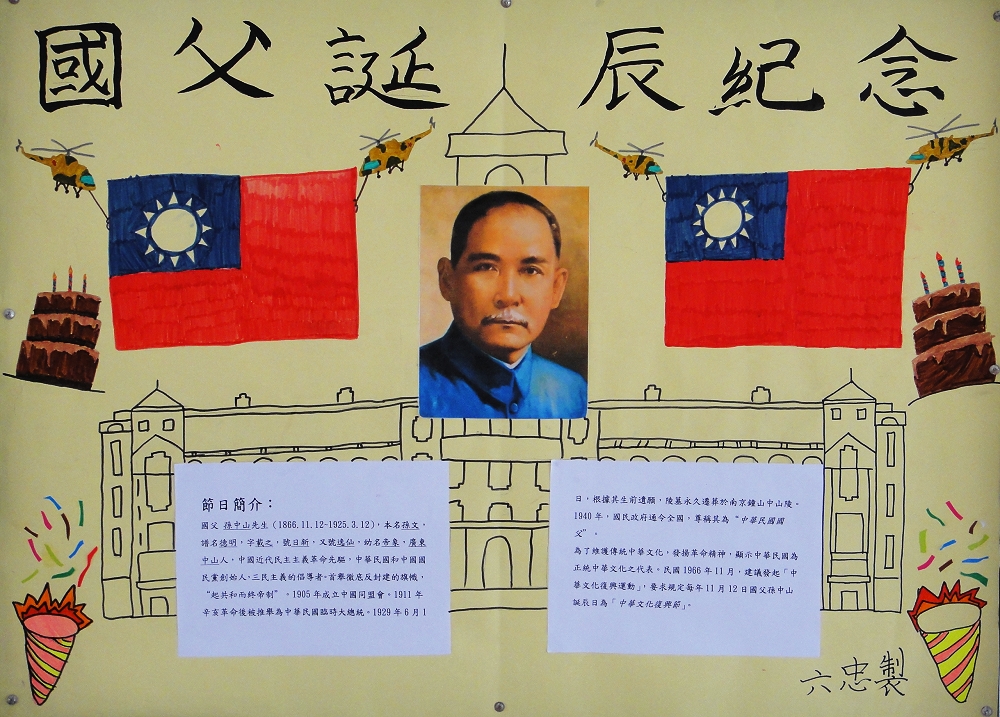 國父誕辰紀念
節日簡介：
國父 孫中山先生（1866.11.12-1925.3.12），本名孫文，
譜名德明，字載之，號日新，又號逸仙，幼名帝象，廣東
中山人，中國近代民主主義革命先驅，中華民國和中國國
民黨創始人，三民主義的倡導者。首舉徹底反封建的旗幟，
“起共和而終帝制”。1905年成立中國同盟會。1911年
辛亥革命後被推舉為中華民國臨時大總統。1929年6月1
日，根據其生前遺願，陵墓永久遷葬於南京鐘山中山陵。
1940年，國民政府通令全國，尊稱其為“中華民國國
父”。
為了維護傳統中華文化，發揚革命精神，顯示中華民國為
正統中華文化之代表。民國1966年11月，建議發起「中
華文化復興運動」，要求規定每年11月12日國父孫中山
誕辰日為「中華文化復興節」。
六忠製